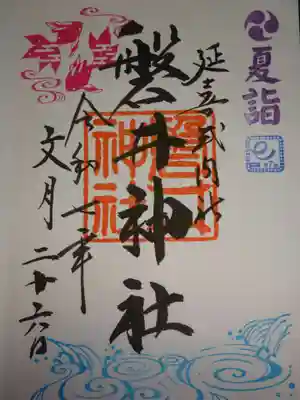 夏詣
延喜式内社
磐井神社
令和七年
文月二十六日